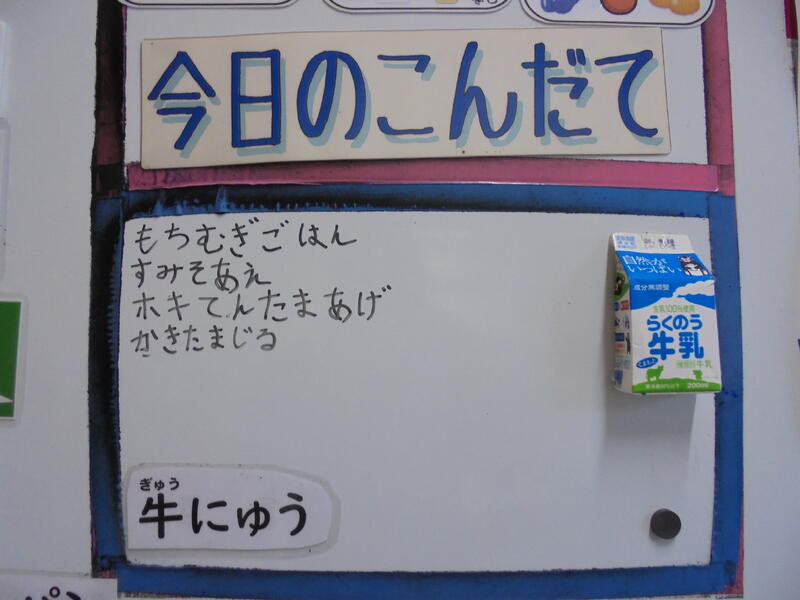 今日のこんだて
もちむぎごはん
すみそあえ
ホキてんたまあげ
かきたまじる
自然がいっぱい
成分無調整
生乳100%使用
らくのう
牛乳
種類別牛乳
200ml
ぎゅう
牛にゅう